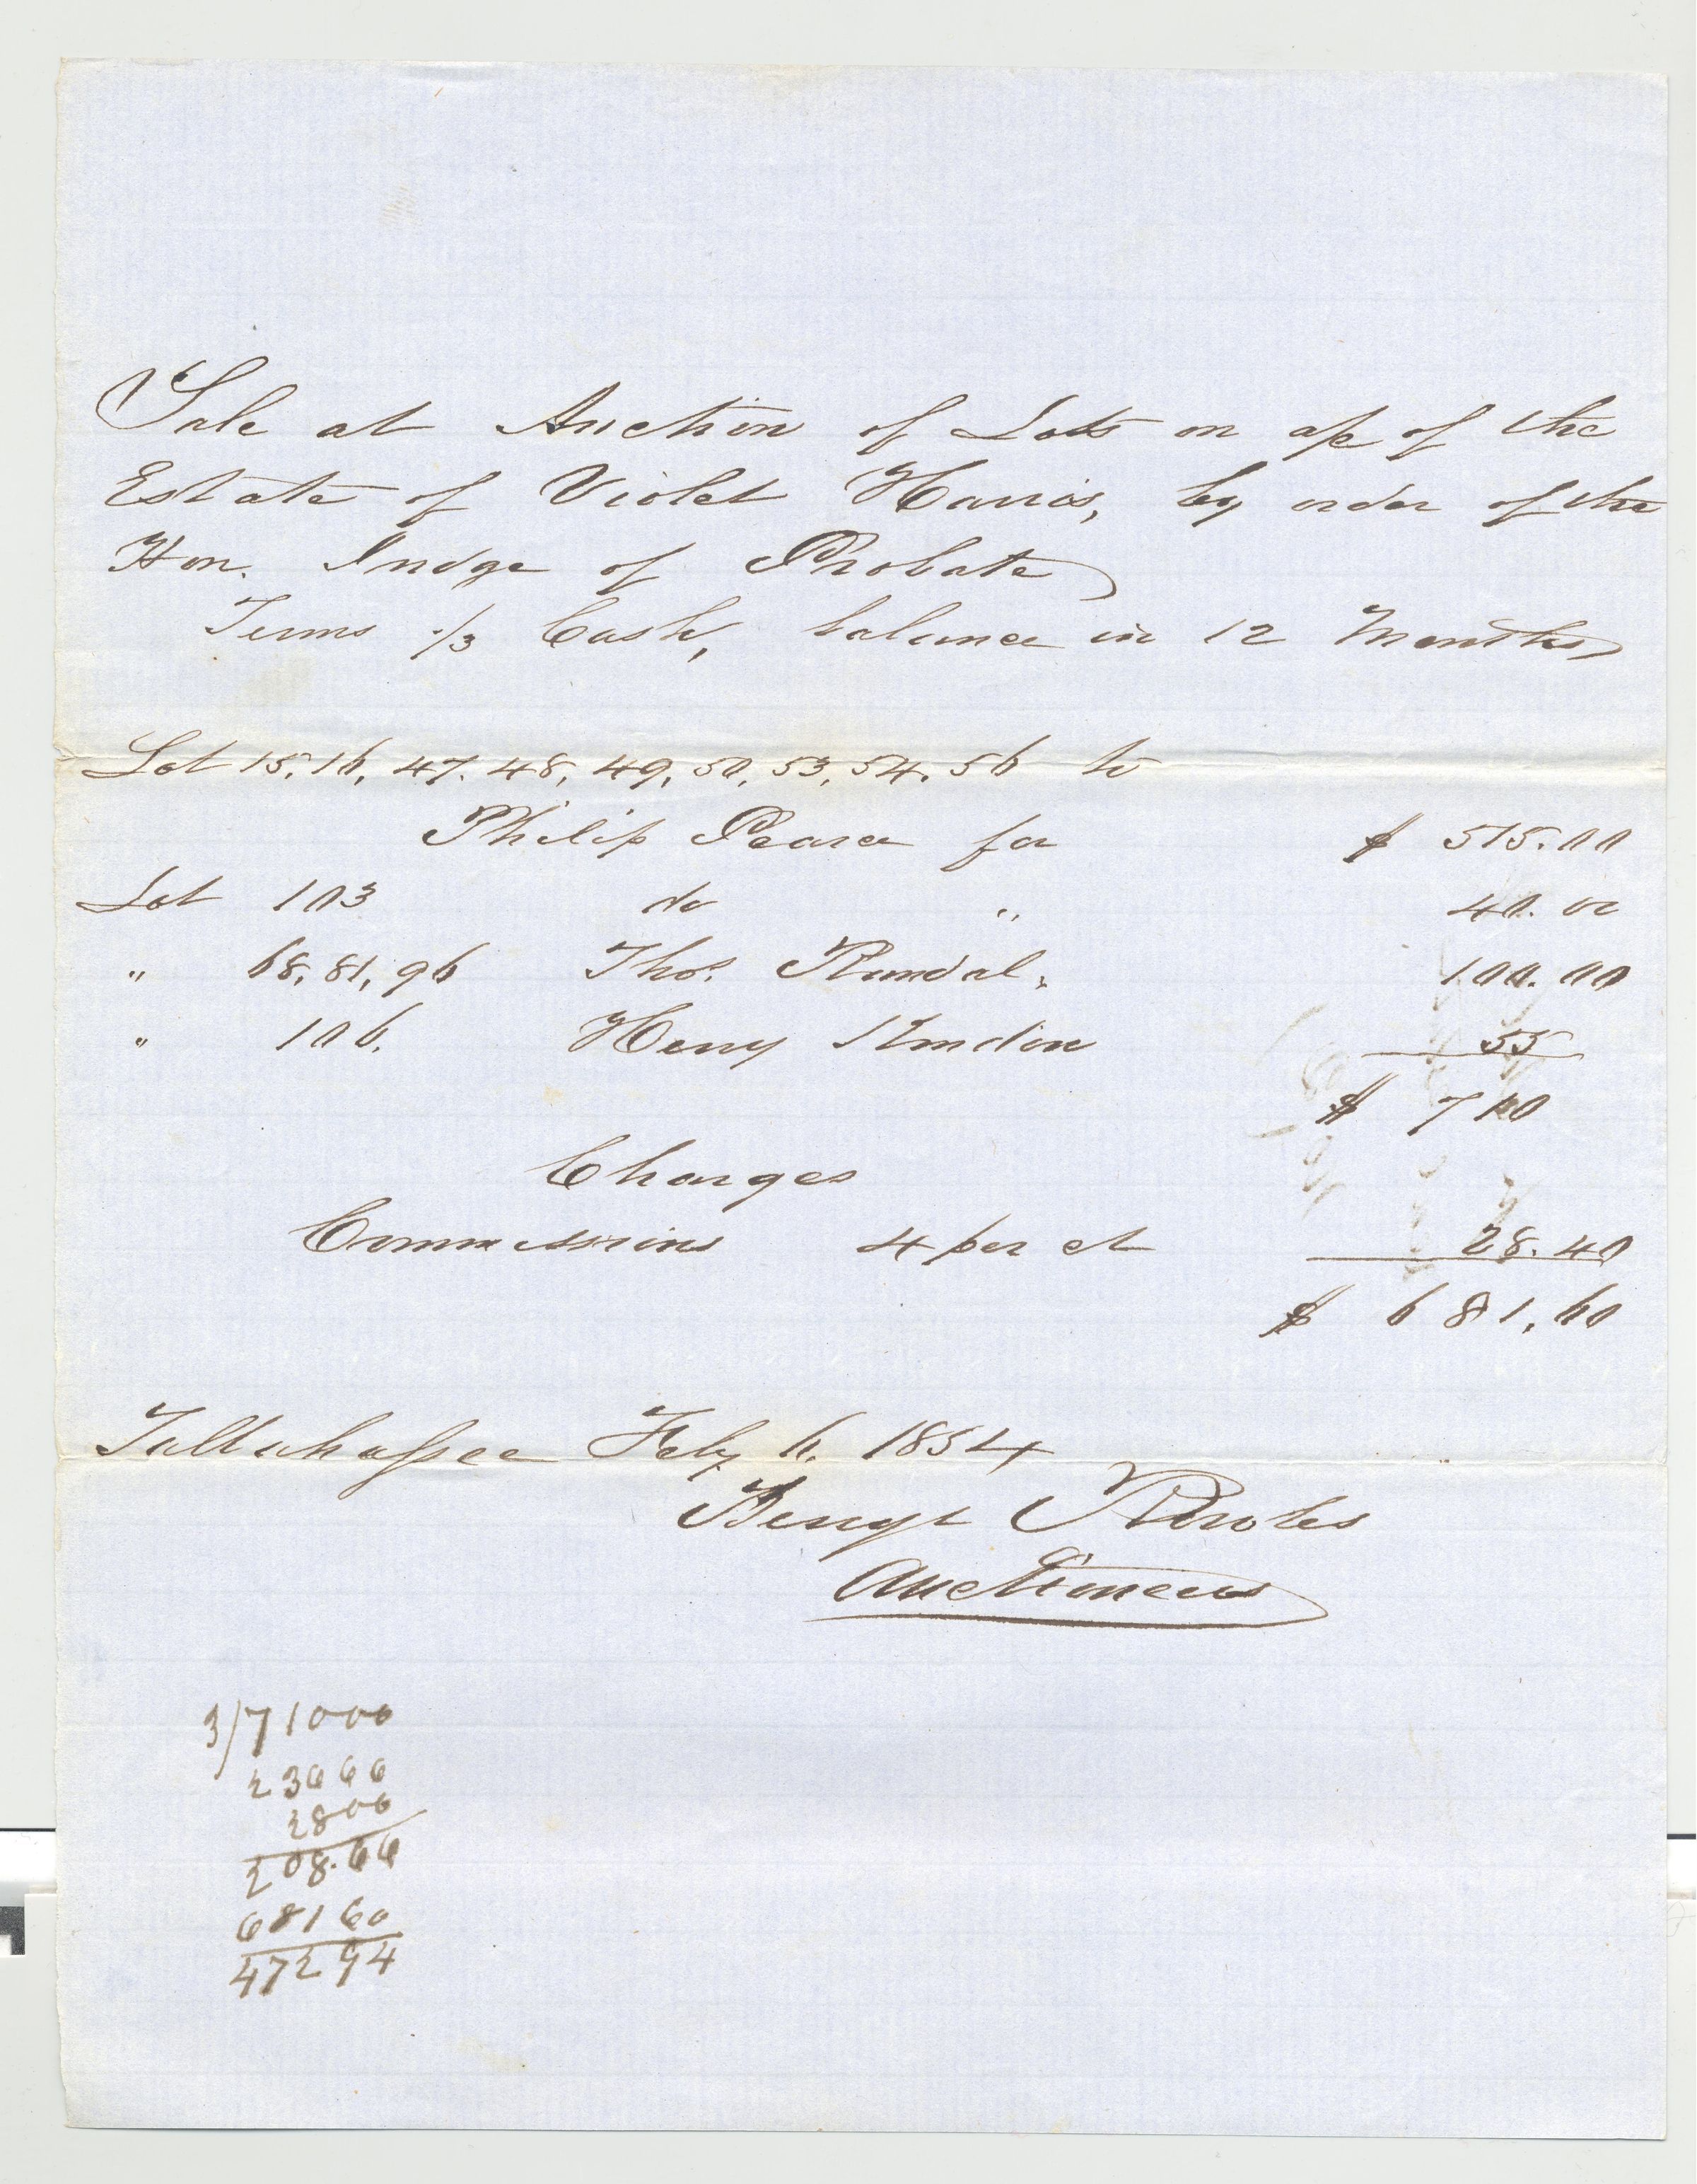 Sale at Auction of Lots on a/c of the
Estate of Violet Harris, by order of the
Hon. Judge of Probate
Terms 1/3 Cash, balance in 12 Months
Lot 15, 16, 47. 48, 49, 50, 53, 54. 56 to
Philip Pearce for $ 515.00
Lot 103 do " 40.00
" 68, 81, 96 Thos. Randal " 100.00
" 106. Henry 55
$ 710
Charges
Commissions 4 per ct 28.40
$ 681,60
Tallahassee Feby 6. 1854
Auctioneer
3/71000
23666
2800
208.66
68160
47294